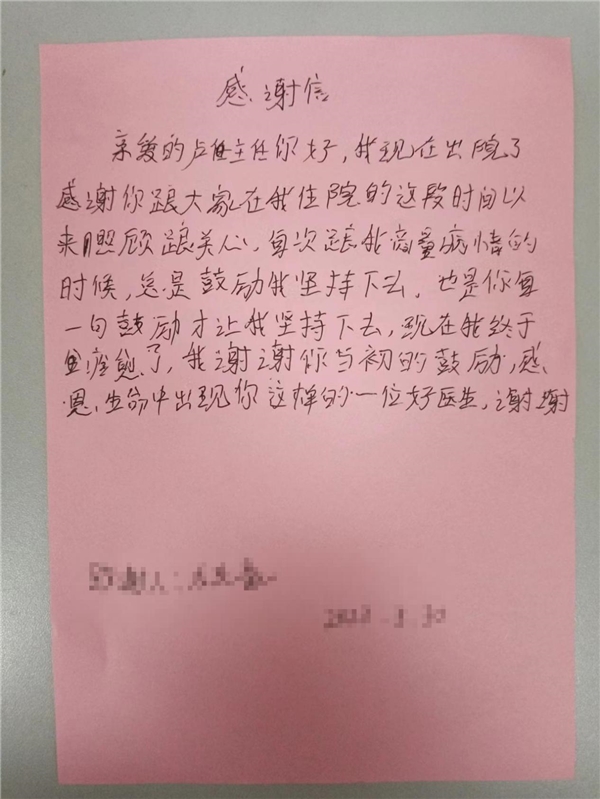 感谢信
亲爱的卢主任你好，我现在出院了
感谢你跟大家在我住院的这段时间以
来照顾跟关心，每次跟我商量病情的
时候，总是鼓励我坚持下去，也是你每
一句鼓励才让我坚持下去，现在我终于
痊愈了，我谢谢你当初的鼓励，感
恩，生命中出现你这样的一位好医生，谢谢